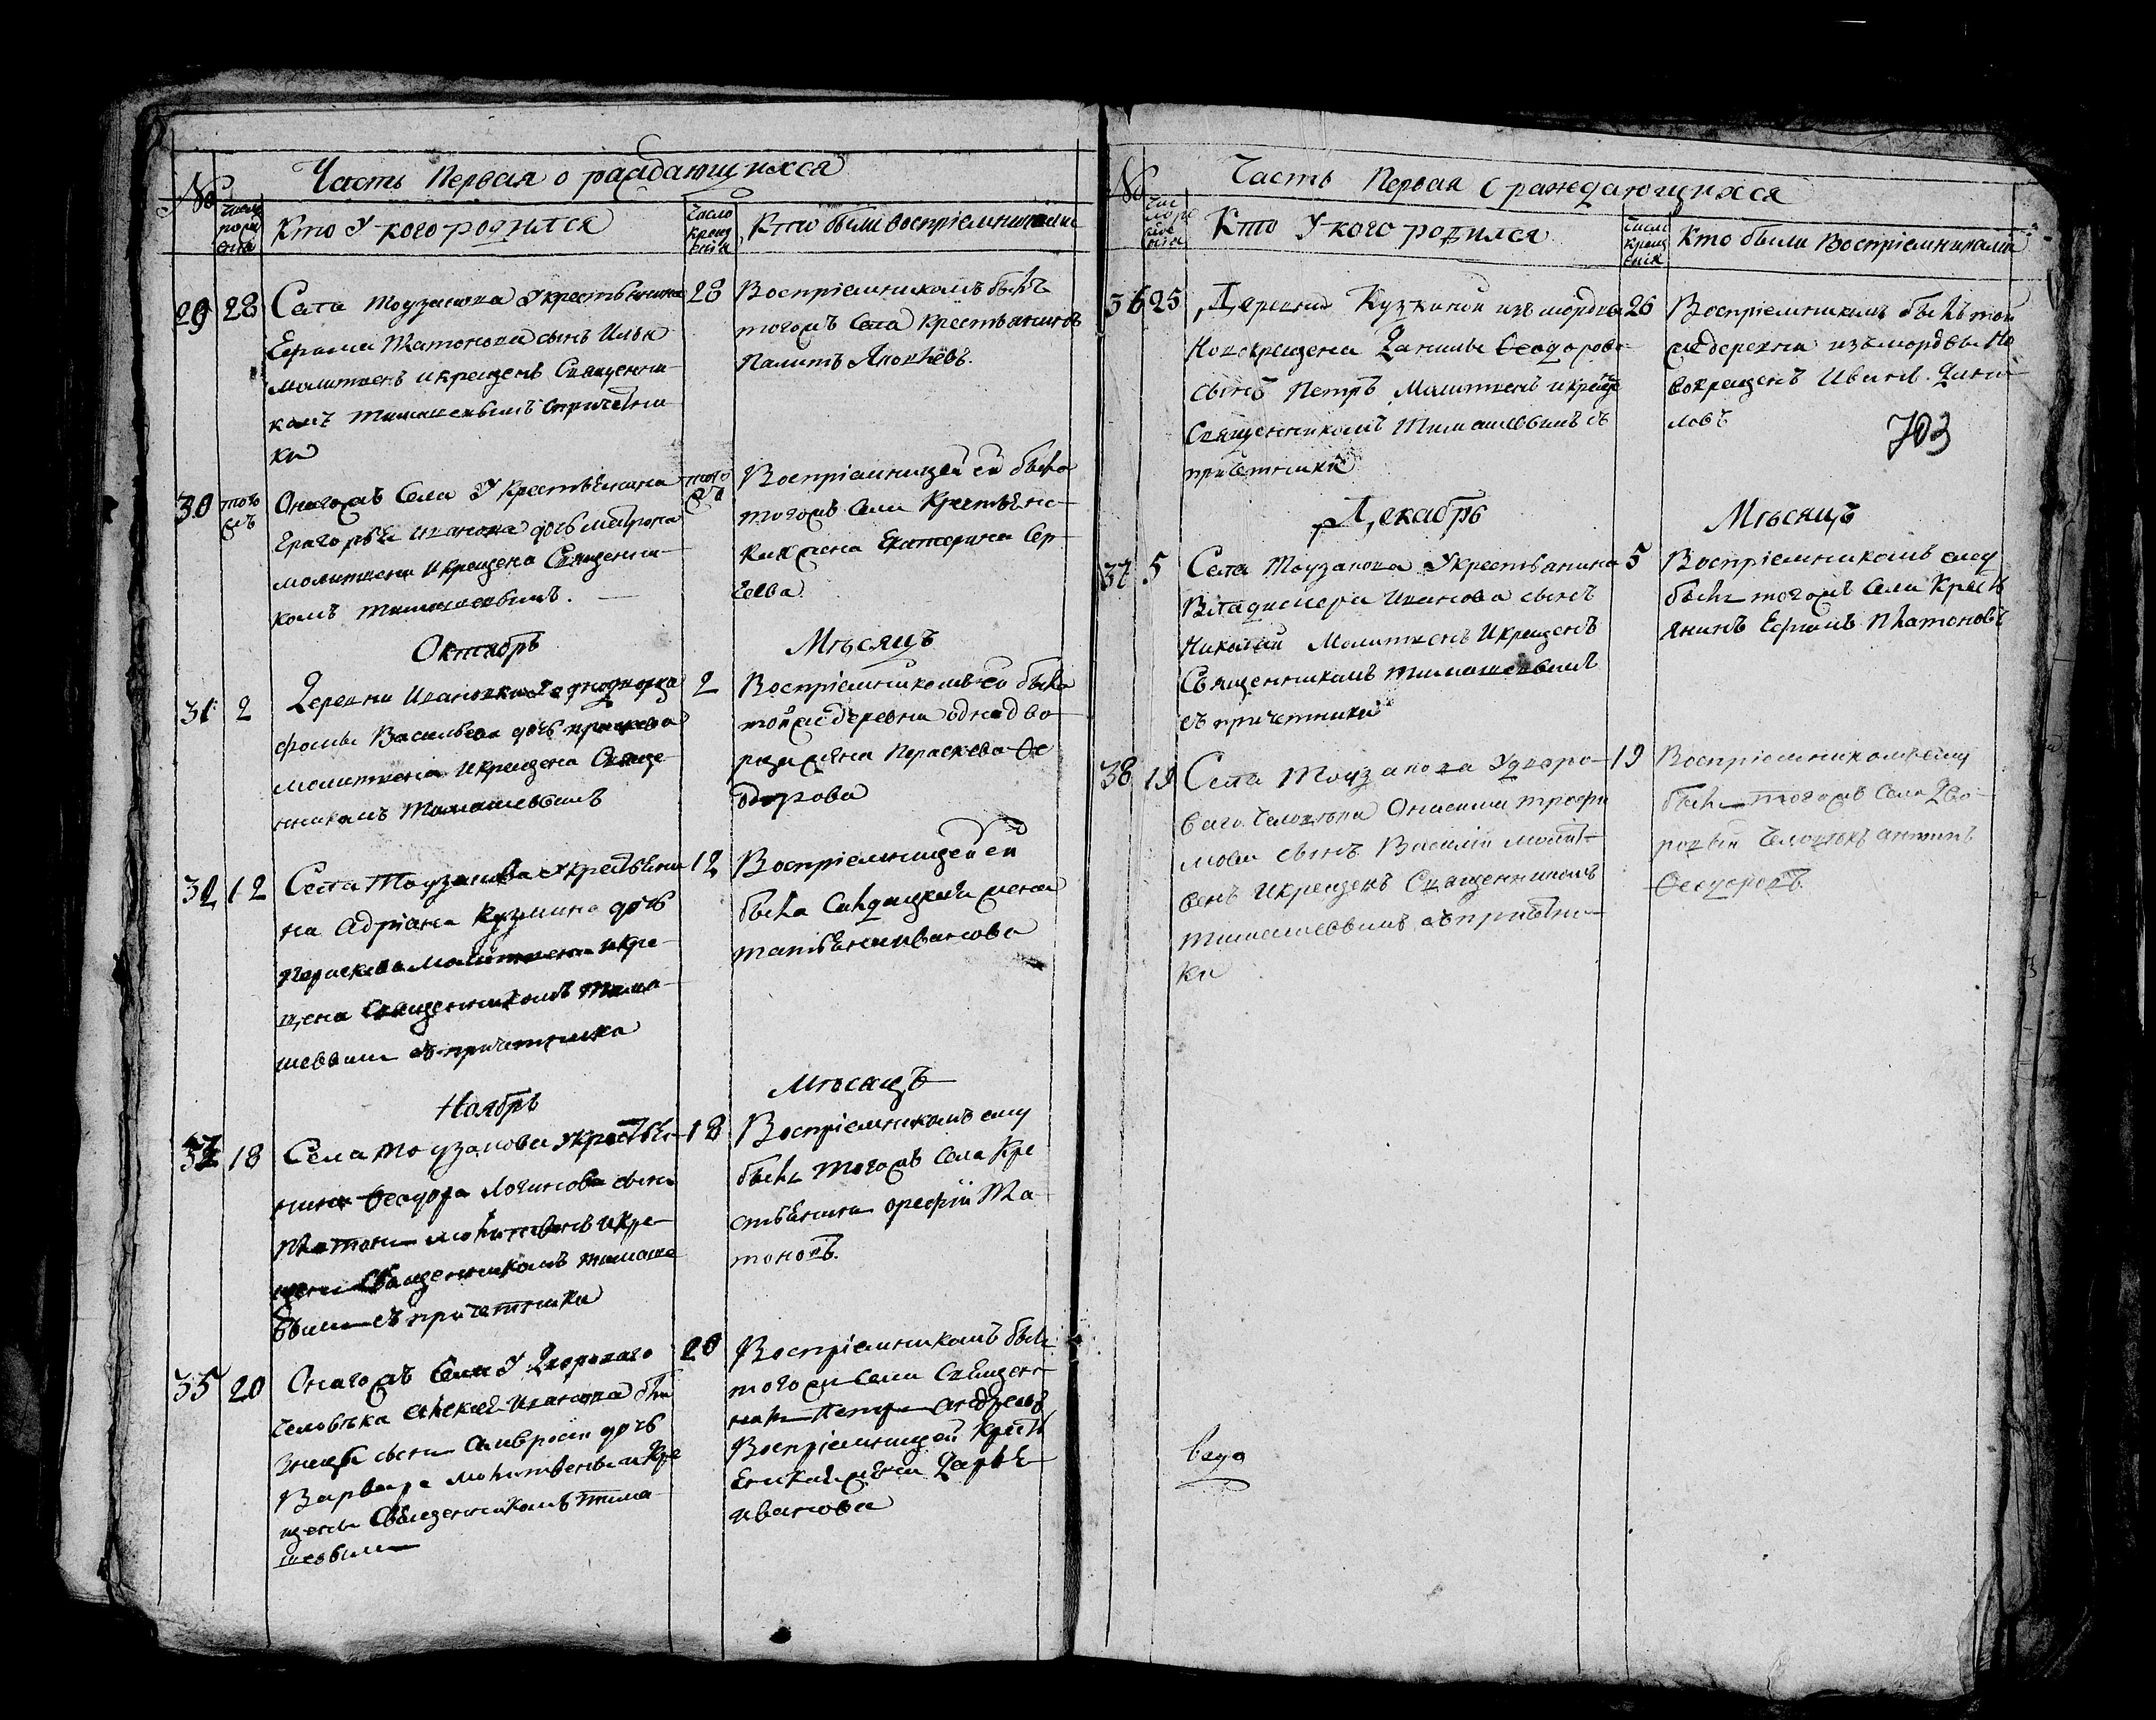 №
Часть Первая о раждающихся
Число рожд ения
Кто У кого родился
Число крещ ения
Кто были восприемниками
29 28 Села Моузанова Укрестьянина 28
Ефрема Платонова сынъ Илья
молитвенъ икрещенъ Священни-
комъ Тимашевымъ спричетни-
ки
Восприемникомъ былъ
тогожъ Села крестьянинъ
Яковлевъ.
30 тогожъ Оногожъ Села У Крестьянина тогожъ
Иванова дочь матрона
молитвена икрещена Священни-
комъ Тимашевымъ.
Восприемницей ей была
тогожъ Села Крестьянс-
кая жена Екатерина Сер-
геева
Октябрь Мѣсяцъ
31 2 Деревни Ивановки Уоднодворца 2
фомы Васильева дочь праскева
молитвена икрещена Свяще-
нникомъ Тимашевымъ
Восприемникомъ ей была
тойже деревни однодво-
рца жена Параскева Ѳе
одорова
32 12 Села Моузанова Укрестьяни 12
на Адриана Кузмина дочь
Параскева Молитвена икре-
щена Священникомъ Тима-
шевым съпричетники
Восприемницей ей
была Салдацкая жена
татьяна иванова
Ноябрь Мѣсяцъ
18 Села Моузанова Укрестья- 18
нина Ѳеодора Логинова сынъ
Платон молитвенъ икре-
щенъ Священникомъ тимаше
вымъ съ причетники
Восприемникомъ ему
былъ тогожъ Села Кре
стьянинъ Пла
тоновъ.
35 20 Оногожъ Села У Двороваго 20
человѣка алексея Иванова бли
знецы сынъ Амвросий дочь
Варвара молитвены икре
щены Священникомъ тима-
шевым
Восприемникомъ былъ
тогожъ Села Священ-
никъ Петръ андреевъ
Восприемницей Крестья
янская жена Дарья
иванова
№
Часть Первая о раждающихся
Чис ло ро жде ния
Кто У кого родился
Число крещ ения
Кто были Восприемниками
36 25 Деревни Кузкиной изъ мордвы 26
Новокрещена Данилы Ѳеодорова
сынъ Петръ Молитвенъ икреще
Священникомъ Тимашевымъ съ
причетники
Восприемникомъ былъ той
же деревни изъ мордвы Но
вокрещенъ Иванъ Дани
ловъ
703
Декабрь Мѣсяцъ
37 5 Села Моузанова Укрестьянина 5
Владимера Иванова сынъ
Николай Молитвенъ Икрещенъ
Священникомъ тимашевымъ
съ причетники
Восприемникомъ ему
былъ тогожъ Села Кресть
янинъ Ефремъ Платоновъ
38 19 Села Моузанова Удворо- 19
ваго Человѣка Онисима трофи
мова сынъ Василий молит-
венъ Икрещенъ Священникомъ
тимашевымъ съпричетни-
ки
Восприемникомъ ему
былъ тогожъ Села Дво-
ровый Человѣкъ антипъ
Ѳеодоровъ.